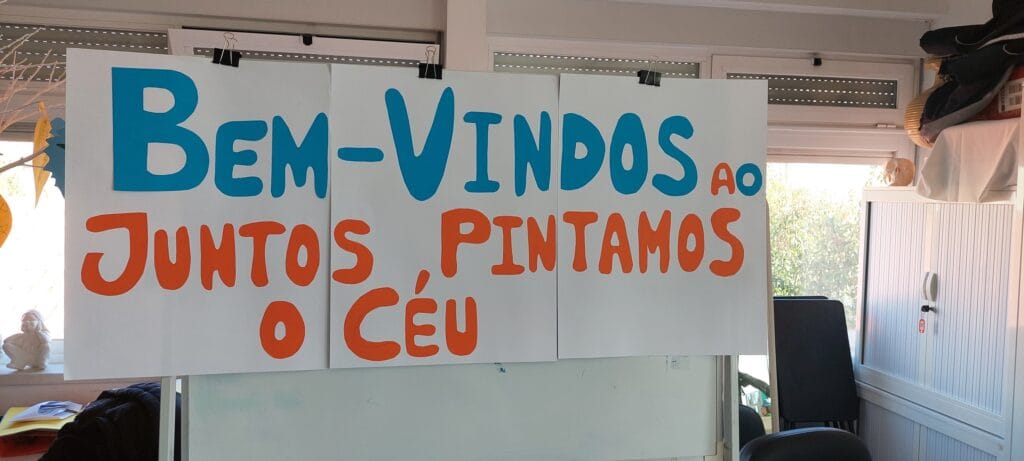 BEM-VINDOS AO
JUNTOS PINTAMOS
O CÉU